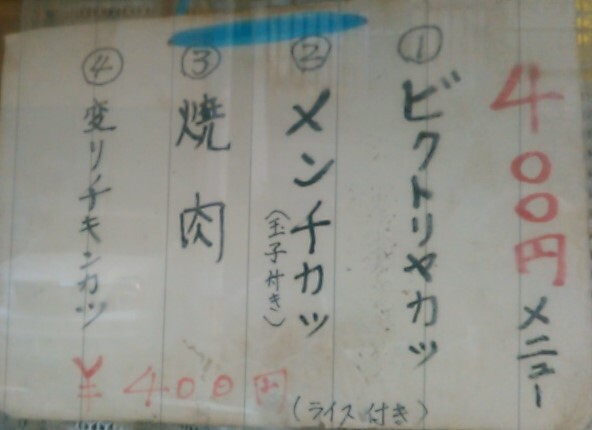 400円メニュー
①ビクトリヤカツ
②メンチカツ
(玉子付き)
③焼肉
④変リチキンカツ
¥400円
(ライス付き)